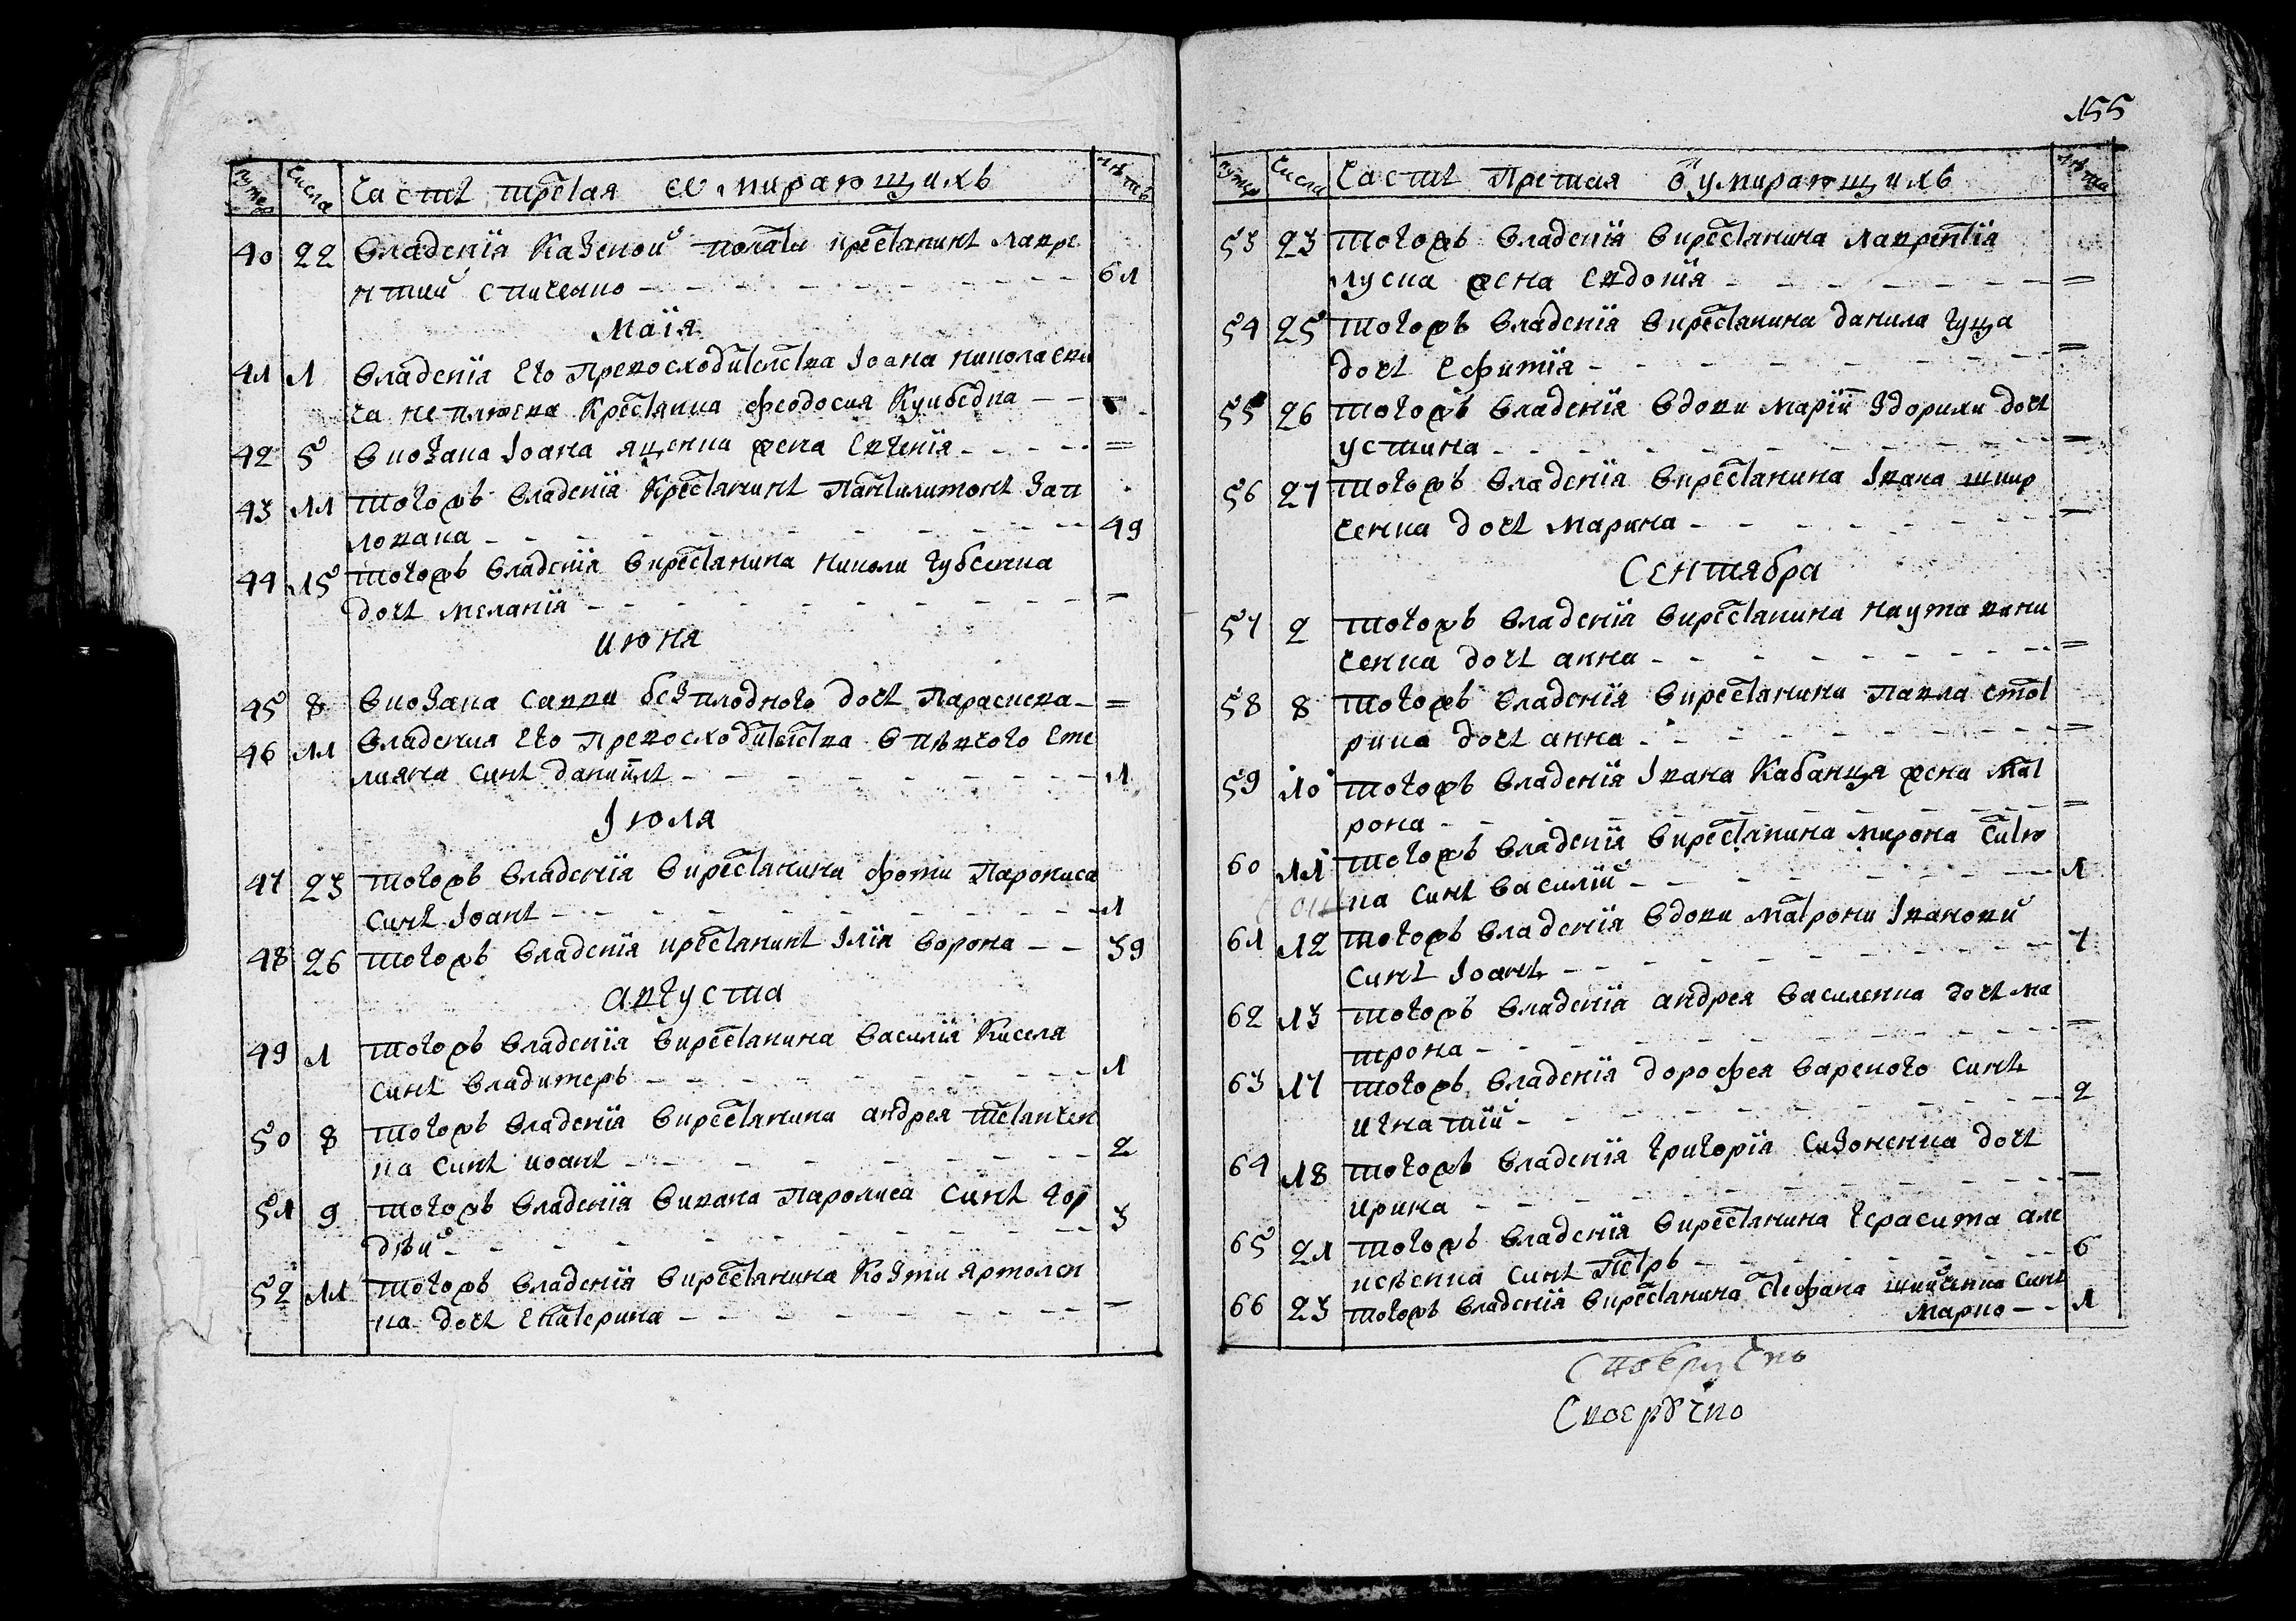 Числа Часть третая о умирающихъ лѣтъ
40 22 Владенїя Казеной полати крестанинъ Лавре
нтий спичеико 61
Маїя
41 1 Владенїя его Превосходителства Іоана николаеви
ча неплюева крестянка феодосия
42 5 Вкозака Іоана яценка жена Евгенїя =
43 11 тогожъ владенїя крестанинъ Пантилимонъ Зап
ловака 49
44 15 тогожъ владенїя вкрестанина николи губсенка
дочь мелания =
июня
45 8 Вкозака савки безплодного дочь Параскева =
46 11 Владения его Превосходителства Еме
лияна синъ даниилъ 1
Іюля
47 23 тогожъ владенїя вкрестанина фоми
синъ Іоанъ 1
48 26 тогожъ владенїя крестанинъ Ілїя ворона 39
августа
49 1 тогожъ владенїя вкрестанина василїя Киселя
синъ владимеръ 1
50 8 тогожъ владенїя вкрестанина андрея
ка синъ иоанъ 2
51 9 тогожъ владенїя вивана синъ гор
дѣй 3
52 11 тогожъ владенїя вкрестанина Козми ярмолен
ка дочь екатерина =
155
Числа Часть Третая о умирающихъ лѣта
53 23 тогожъ владенїя вкрестанина лаврентїя
луска жена евдокїя =
54 25 тогожъ владенїя вкрестанина данила гуца
дочь ефимїя =
55 26 тогожъ владенїя вдови Марїи дочь
устина =
56 27 тогожъ владенїя вкрестанина Івана шкир
ченка дочь Марина =
Сентябра
57 2 тогожъ владенїя вкрестанина наума вани
ченка дочь анна =
58 8 тогожъ владенїя вкрестанина павла стол
рика дочь анна =
59 10 тогожъ владенїя Івана Кабанця жена Мат
рона =
60 11 тогожъ владенїя вкрестанина мирона
ка синъ василїй 1
61 12 тогожъ владенїя вдови Матрони Івановй
синъ Іоанъ 7
62 13 тогожъ владенїя андрея василенка дочь ма
трона =
63 17 тогожъ владенїя дорофея вареного синъ
игнатїй 2
64 18 тогожъ владенїя григорїя Сизоненка дочь
ирина =
65 21 тогожъ владенїя вкрестанина герасима але
ксѣенка синъ Петръ 6
66 23 тогожъ владенїя вкрестанина стефана синъ
Марко 1
Своеручно
Своерꙋчно